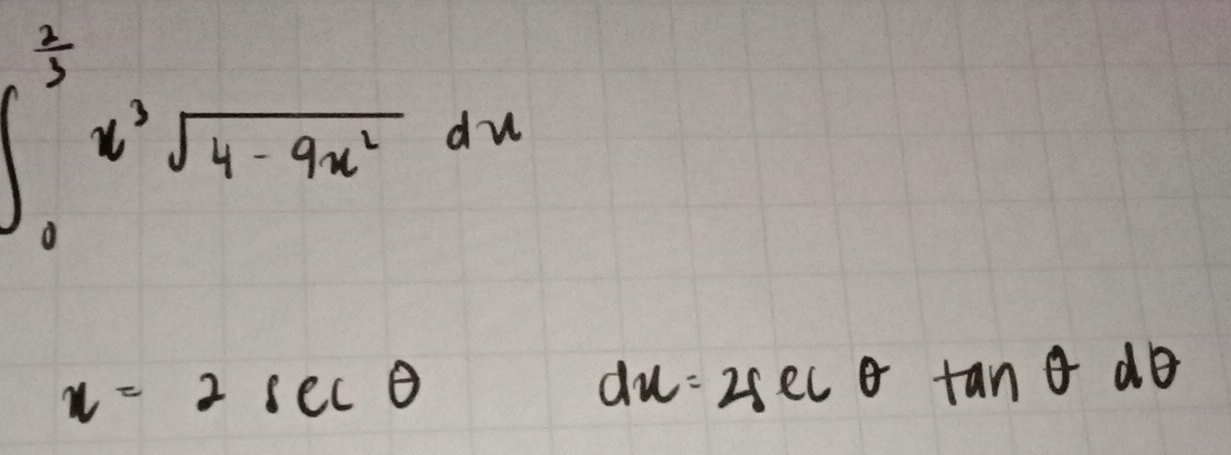 ∫₀^{2/3} x³ √(4 - 9x²) dx
x = 2 sec θ dx = 2sec θ tan θ dθ